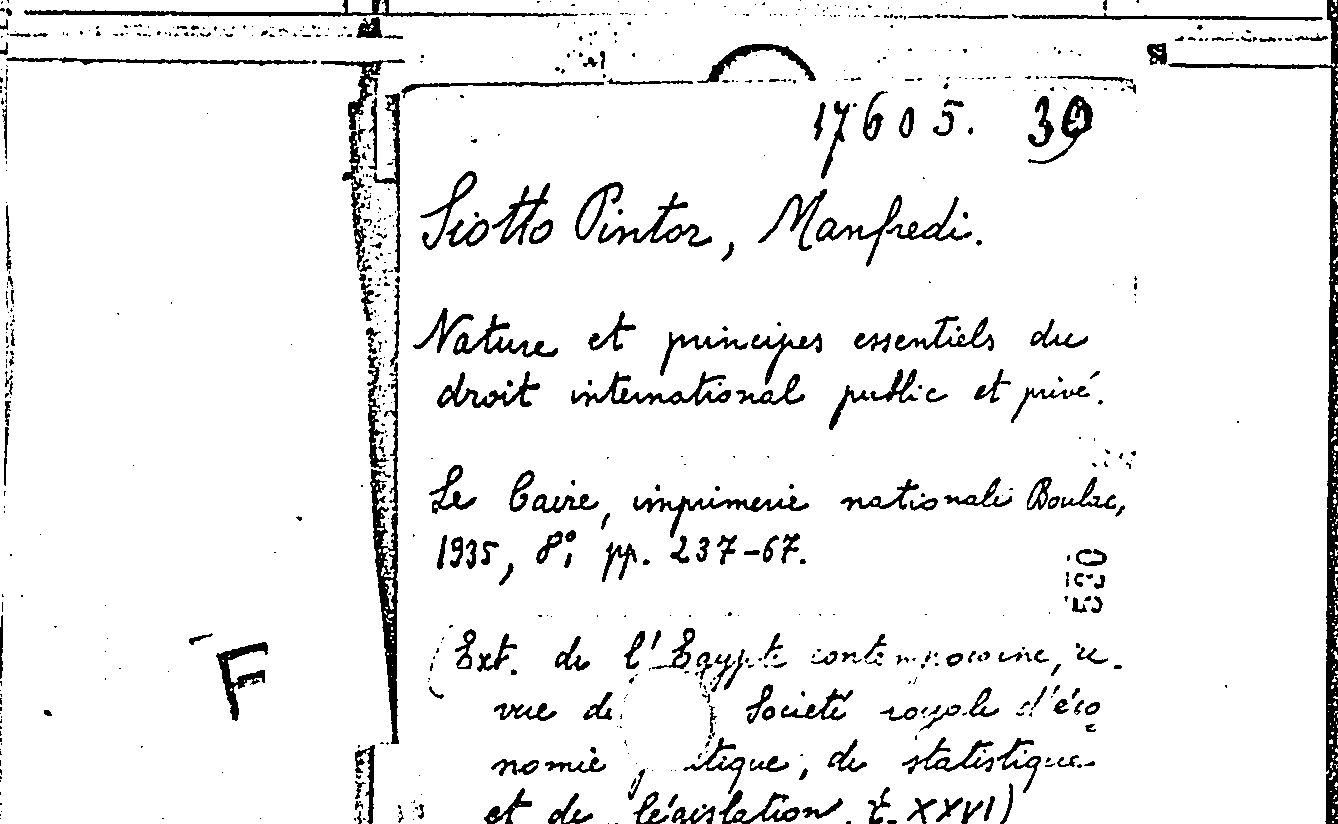 17605. 39
Siotto Pintor, Manfredi.
Nature et principes essentiels du
droit international public et privé.
Le Caire, imprimerie nationale Boulac,
1935, 8°, pp. 237-67.
(Ext. de l'Egypte contemporaine, re-
vue de Société royale d'éco
nomie itique, de statistique
et de législation, t. XXVI)
F